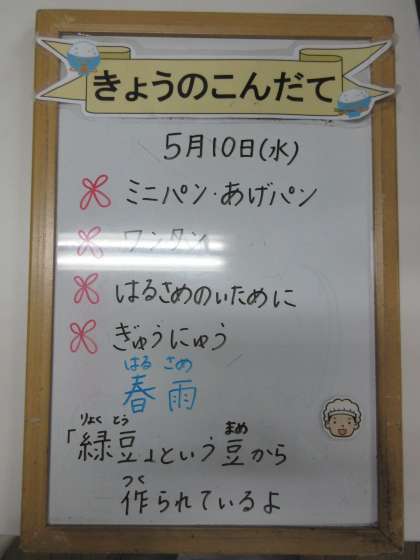 きょうのこんだて
5月10日(水)
ミニパン・あげパン
ワンタン
はるさめのいために
ぎゅうにゅう
はる さめ
春雨
りょく とう まめ
「緑豆」という豆から
つく
作られているよ